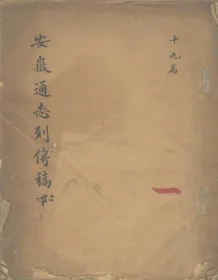 十九篇
安徽通志列傳稿